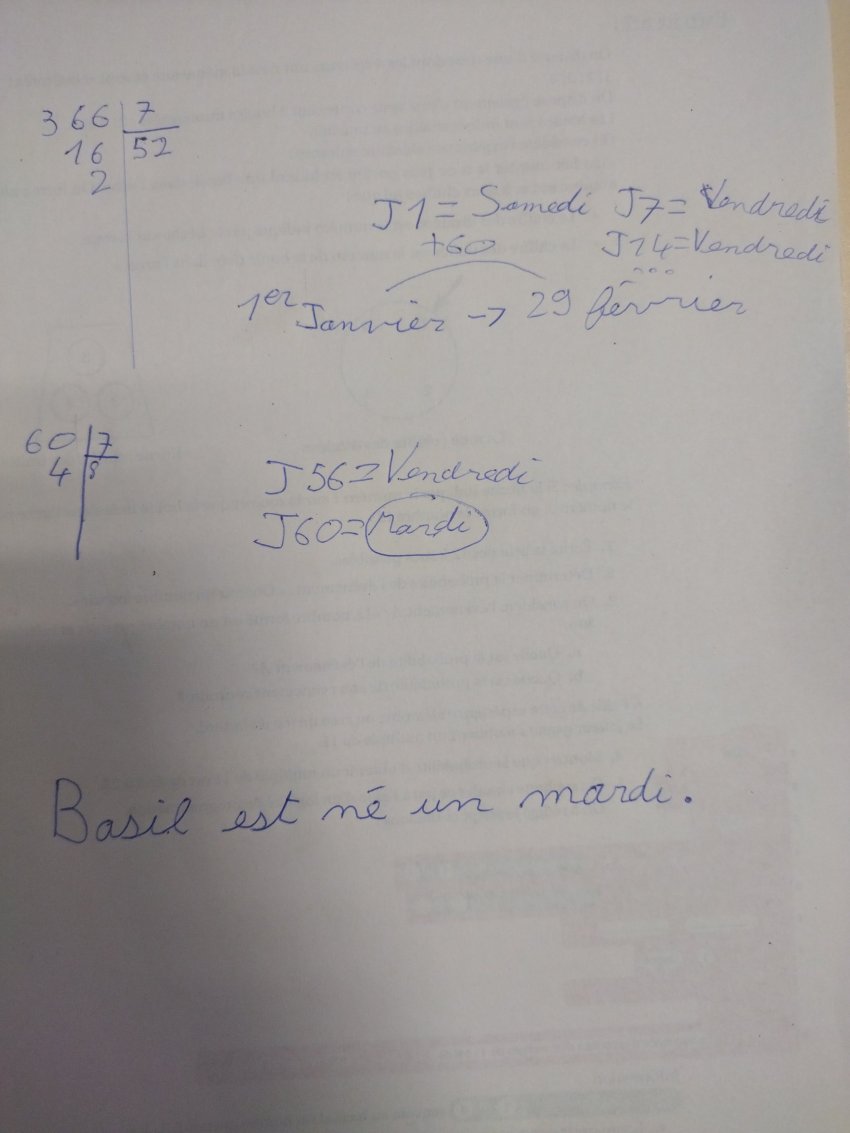 366 | 7
16 | 52
2
J1 = Samedi J7 = Vendredi
+60 J14 = Vendredi
...
1er Janvier -> 29 février
60 | 7
4 | 8
J56 = Vendredi
J60 = Mardi
Basil est né un mardi.